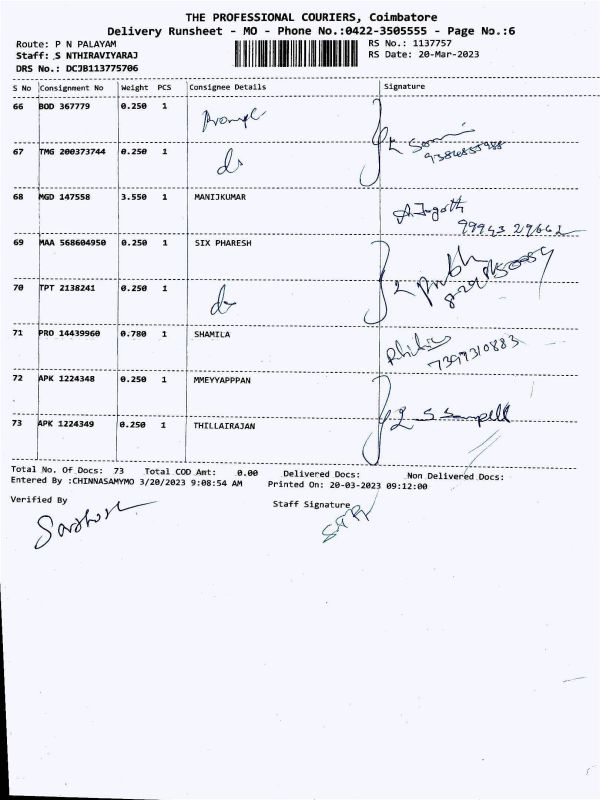 THE PROFESSIONAL COURIERS, Coimbatore
Delivery Runsheet - MO - Phone No.:0422-3505555 - Page No.:6
Route: P N PALAYAM
RS No.: 1137757
Staff: S NTHIRAVIYARAJ
RS Date: 20-Mar-2023
DRS No.: DCJB113775706
S No Consignment No Weight PCS Consignee Details Signature
66 BOD 367779 0.250 1
67 TMG 200373744 0.250 1
68 MGD 147558 3.550 1 MANIJKUMAR
99943 29662
69 MAA 568604950 0.250 1 SIX PHARESH
70 TPT 2138241 0.250 1
71 PRO 14439960 0.780 1 SHAMILA
7397310883
72 APK 1224348 0.250 1 MMEYYAPPPAN
73 APK 1224349 0.250 1 THILLAIRAJAN
Total No. Of Docs: 73 Total COD Amt: 0.00 Delivered Docs: Non Delivered Docs:
Entered By :CHINNASAMYMO 3/20/2023 9:08:54 AM Printed On: 20-03-2023 09:12:00
Verified By Staff Signature